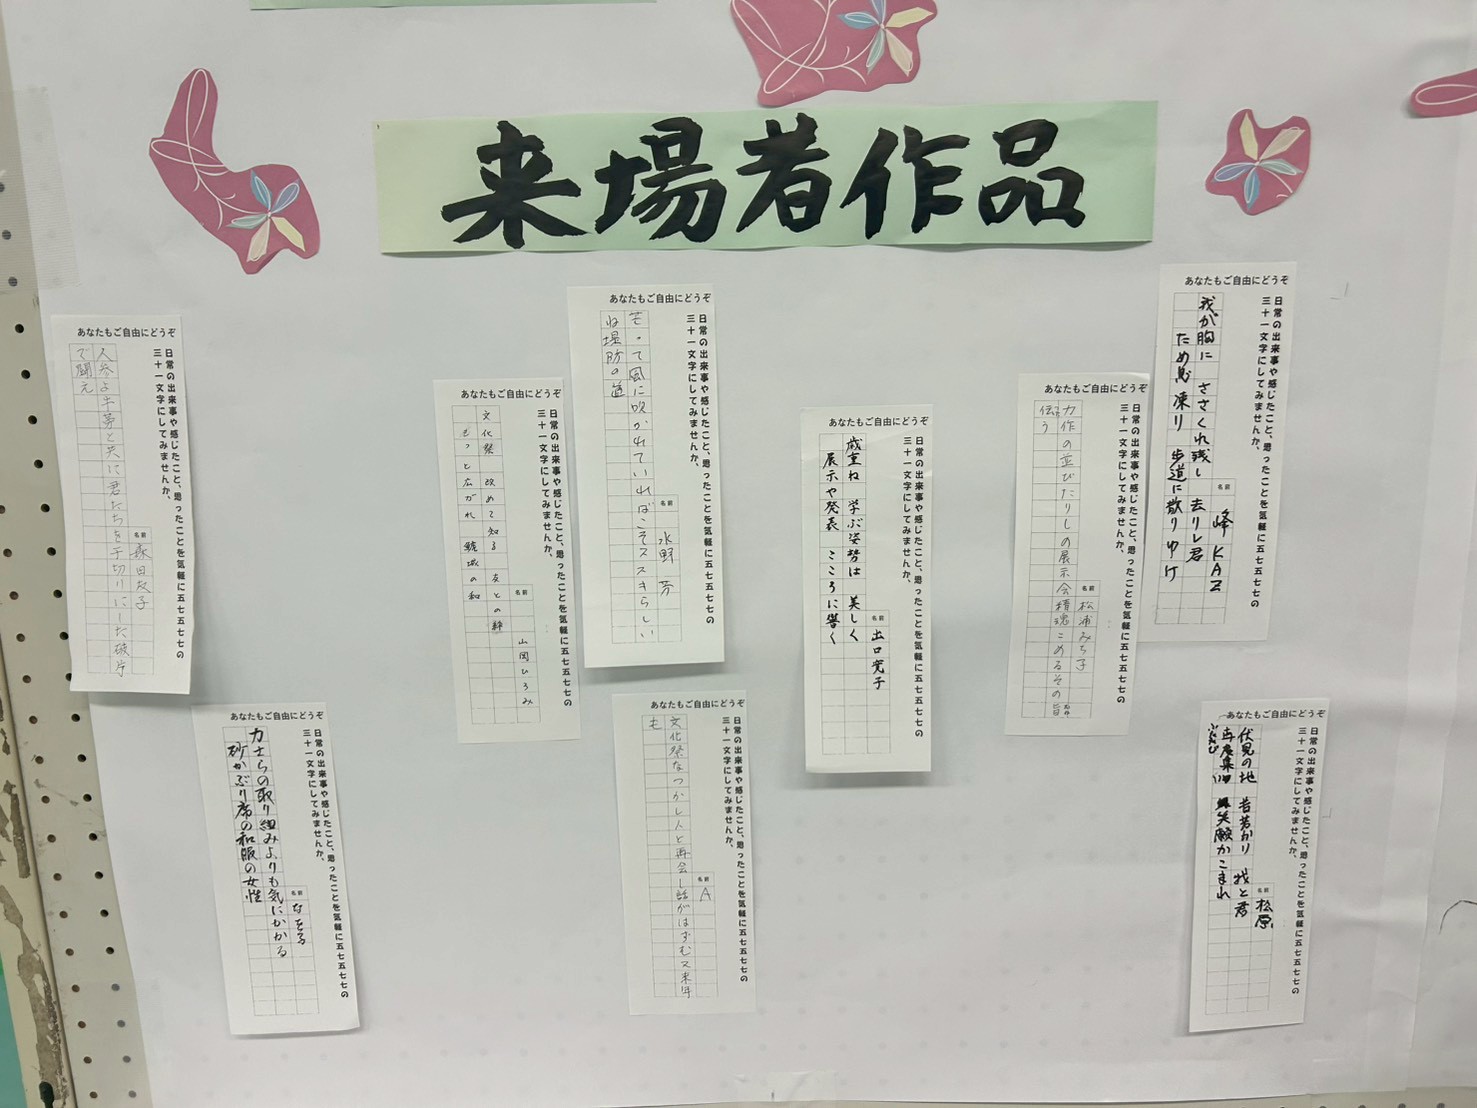 来場者作品
あなたもご自由にどうぞ
日常の出来事や感じたこと、思ったことを気軽に五七五七七の
三十一文字にしてみませんか。
名前
峰 KAZ
我が胸に ささくれ残し 去りし君
ため息凍り 歩道に散りゆけ
あなたもご自由にどうぞ
日常の出来事や感じたこと、思ったことを気軽に五七五七七の
三十一文字にしてみませんか。
名前
松浦みち子
力作の並びたりしの展示会精魂こめるその
伝う
あなたもご自由にどうぞ
日常の出来事や感じたこと、思ったことを気軽に五七五七七の
三十一文字にしてみませんか。
名前
出口寛子
歳重ね 学ぶ姿勢は 美しく
展示や発表 こころに響く
あなたもご自由にどうぞ
日常の出来事や感じたこと、思ったことを気軽に五七五七七の
三十一文字にしてみませんか。
名前
水野 芳
って風に吹かれていればこそススキらしい
ね堤防の道
あなたもご自由にどうぞ
日常の出来事や感じたこと、思ったことを気軽に五七五七七の
三十一文字にしてみませんか。
名前
山岡ひろみ
文化祭 改めて知る 友との絆
もっと広がれ 城の和
あなたもご自由にどうぞ
日常の出来事や感じたこと、思ったことを気軽に五七五七七の
三十一文字にしてみませんか。
名前
森田友子
人参よ牛蒡と共に君たちを千切りにした破片
で闘え
あなたもご自由にどうぞ
日常の出来事や感じたこと、思ったことを気軽に五七五七七の
三十一文字にしてみませんか。
名前
松原
伏見の地 昔若かり 我と君
再度集い 爆笑願かこまれ
ふたたび
あなたもご自由にどうぞ
日常の出来事や感じたこと、思ったことを気軽に五七五七七の
三十一文字にしてみませんか。
名前
A
文化祭なつかし人と再会し話がはずむ又来年
も
あなたもご自由にどうぞ
日常の出来事や感じたこと、思ったことを気軽に五七五七七の
三十一文字にしてみませんか。
名前
なをる
力士らの取り組みよりも気にかかる
砂かぶり席の和服の女性